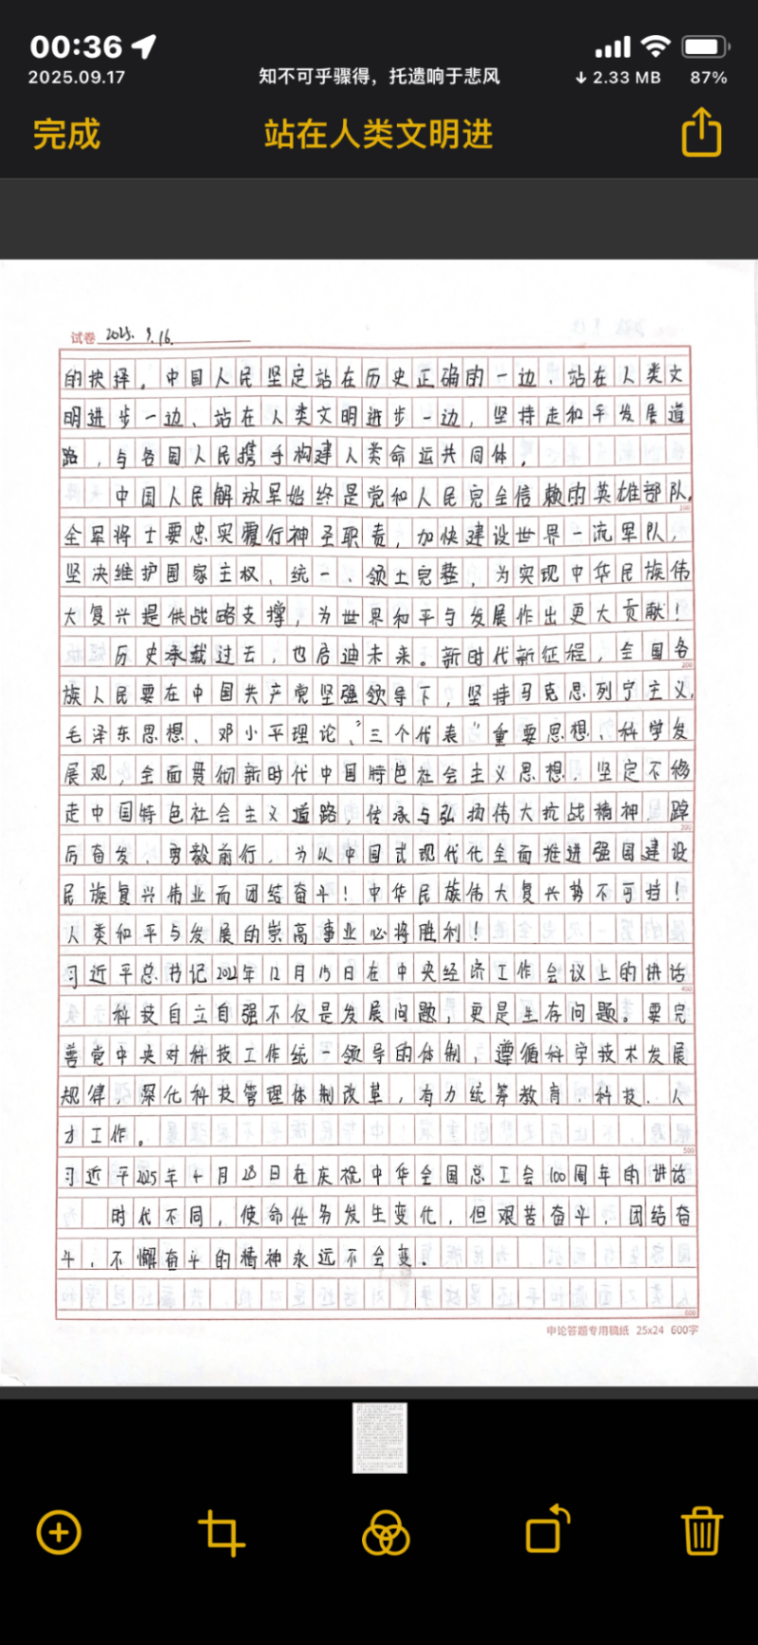 00:36
2025.09.17 知不可乎骤得，托遗响于悲风 ↓ 2.33 MB 87%
完成 站在人类文明进
试卷 2025. 9. 16.
的抉择。中国人民坚定站在历史正确的一边、站在人类文
明进步一边、站在人类文明进步一边，坚持走和平发展道
路，与各国人民携手构建人类命运共同体。
中国人民解放军始终是党和人民完全信赖的英雄部队。
全军将士要忠实履行神圣职责，加快建设世界一流军队，
坚决维护国家主权、统一、领土完整，为实现中华民族伟
大复兴提供战略支撑，为世界和平与发展作出更大贡献！
历史承载过去，也启迪未来。新时代新征程，全国各
族人民要在中国共产党坚强领导下，坚持马克思列宁主义、
毛泽东思想、邓小平理论、“三个代表”重要思想、科学发
展观，全面贯彻新时代中国特色社会主义思想，坚定不移
走中国特色社会主义道路，传承与弘扬伟大抗战精神，踔
厉奋发、勇毅前行，为以中国式现代化全面推进强国建设
民族复兴伟业而团结奋斗！中华民族伟大复兴势不可挡！
人类和平与发展的崇高事业必将胜利！
习近平总书记2022年12月15日在中央经济工作会议上的讲话
科技自立自强不仅是发展问题，更是生存问题。要完
善党中央对科技工作统一领导的体制，遵循科学技术发展
规律，深化科技管理体制改革，有力统筹教育、科技、人
才工作。
习近平2025年4月28日在庆祝中华全国总工会100周年的讲话
时代不同，使命任务发生变化，但艰苦奋斗，团结奋
斗，不懈奋斗的精神永远不会变。
100
200
300
400
500
600
申论答题专用稿纸 25x24 600字